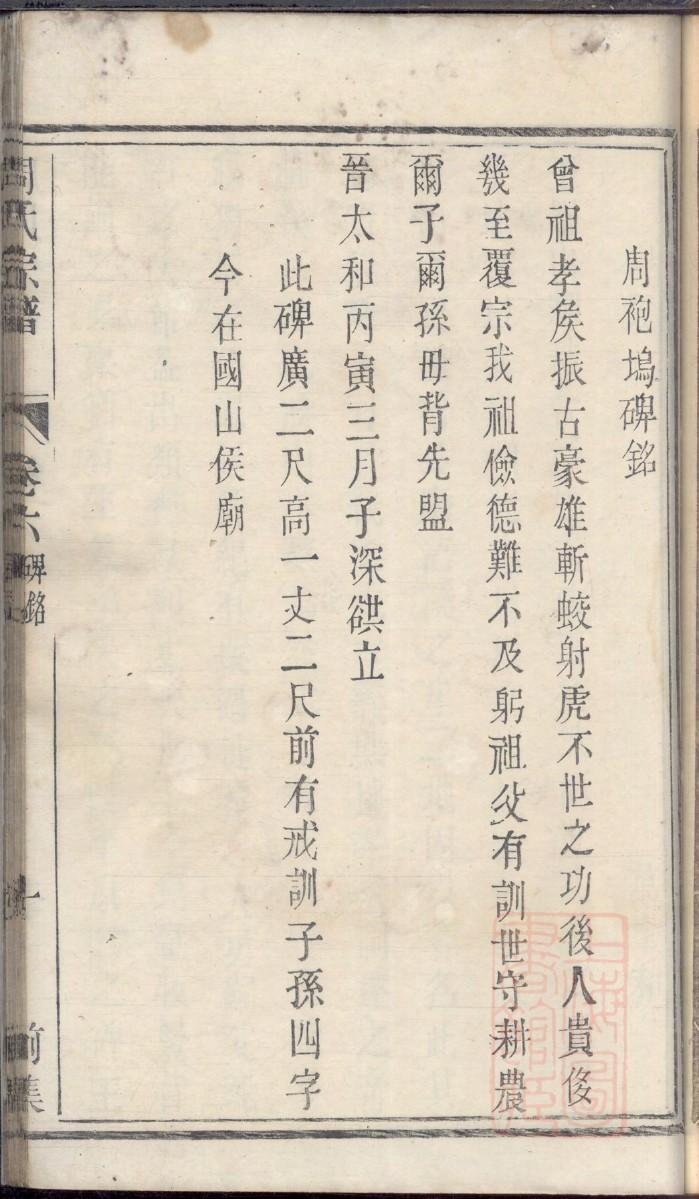 周袍塢碑銘
曾祖孝矦振古豪雄斬蛟射虎不世之功後人貴俊
幾至覆宗我祖儉德難不及躬祖父有訓世守耕農
爾子爾孫毋背先盟
晉太和丙寅三月子深立
此碑廣二尺高一丈二尺前有戒訓子孫四字
今在國山侯廟
周氏宗譜
卷六
碑銘
前集